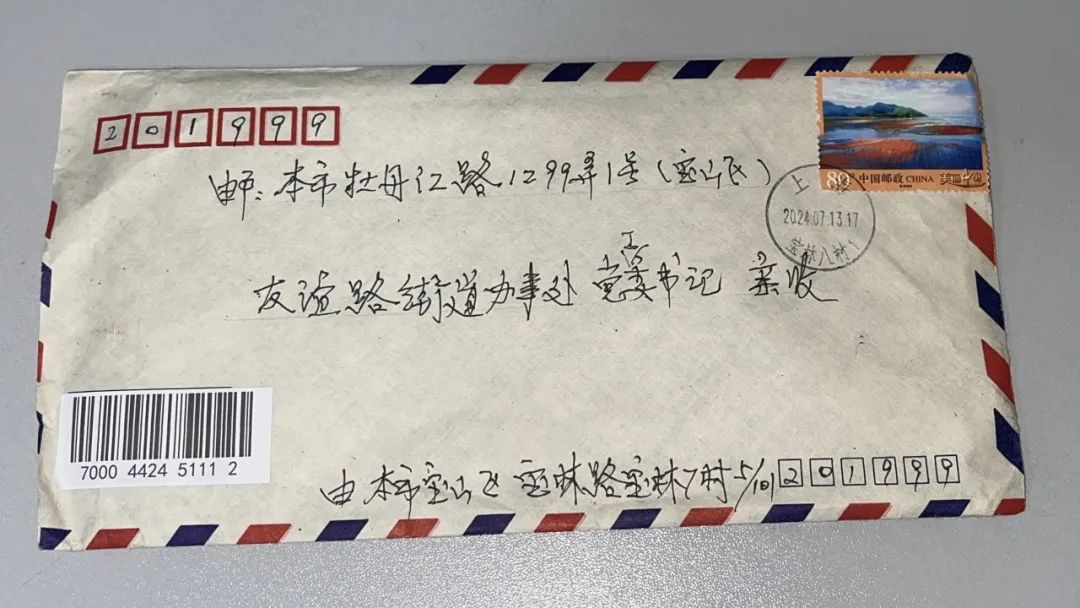 201999
邮：本市牡丹江路1299弄1号（宝山区）
80分 中国邮政 CHINA 美丽中国
上海
2024.07.13.17
宝林八村1
友谊路街道办事处 党工委书记 亲收
7000 4424 5111 2
由本市宝山区宝林路宝林7村5/101 201999